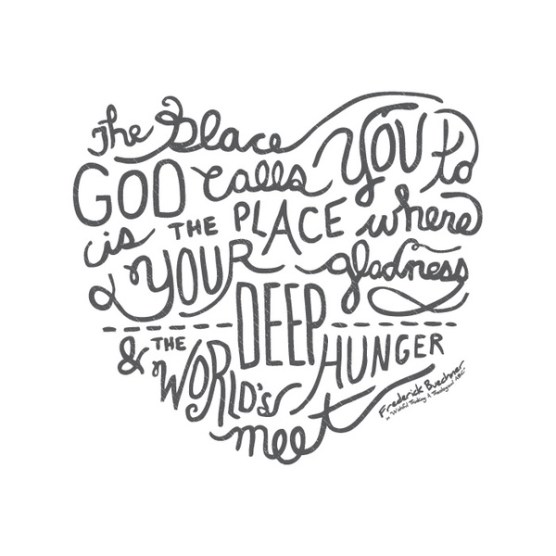 The place
GOD calls YOU to
is THE PLACE where
YOUR DEEP gladness
& THE WORLD'S DEEP HUNGER
meet
Frederick Buechner
in "Wishful Thinking: A Theological ABC"